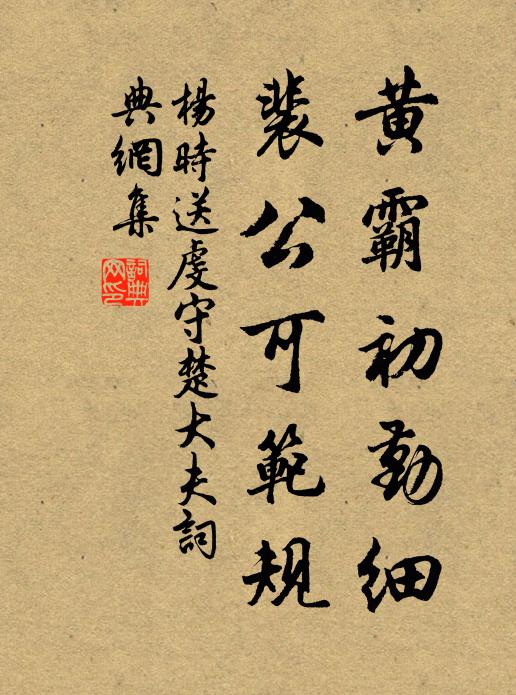 黃霸初勤細
裴公可範規
楊時送虔守楚大夫詞
典網集
詞典
网印